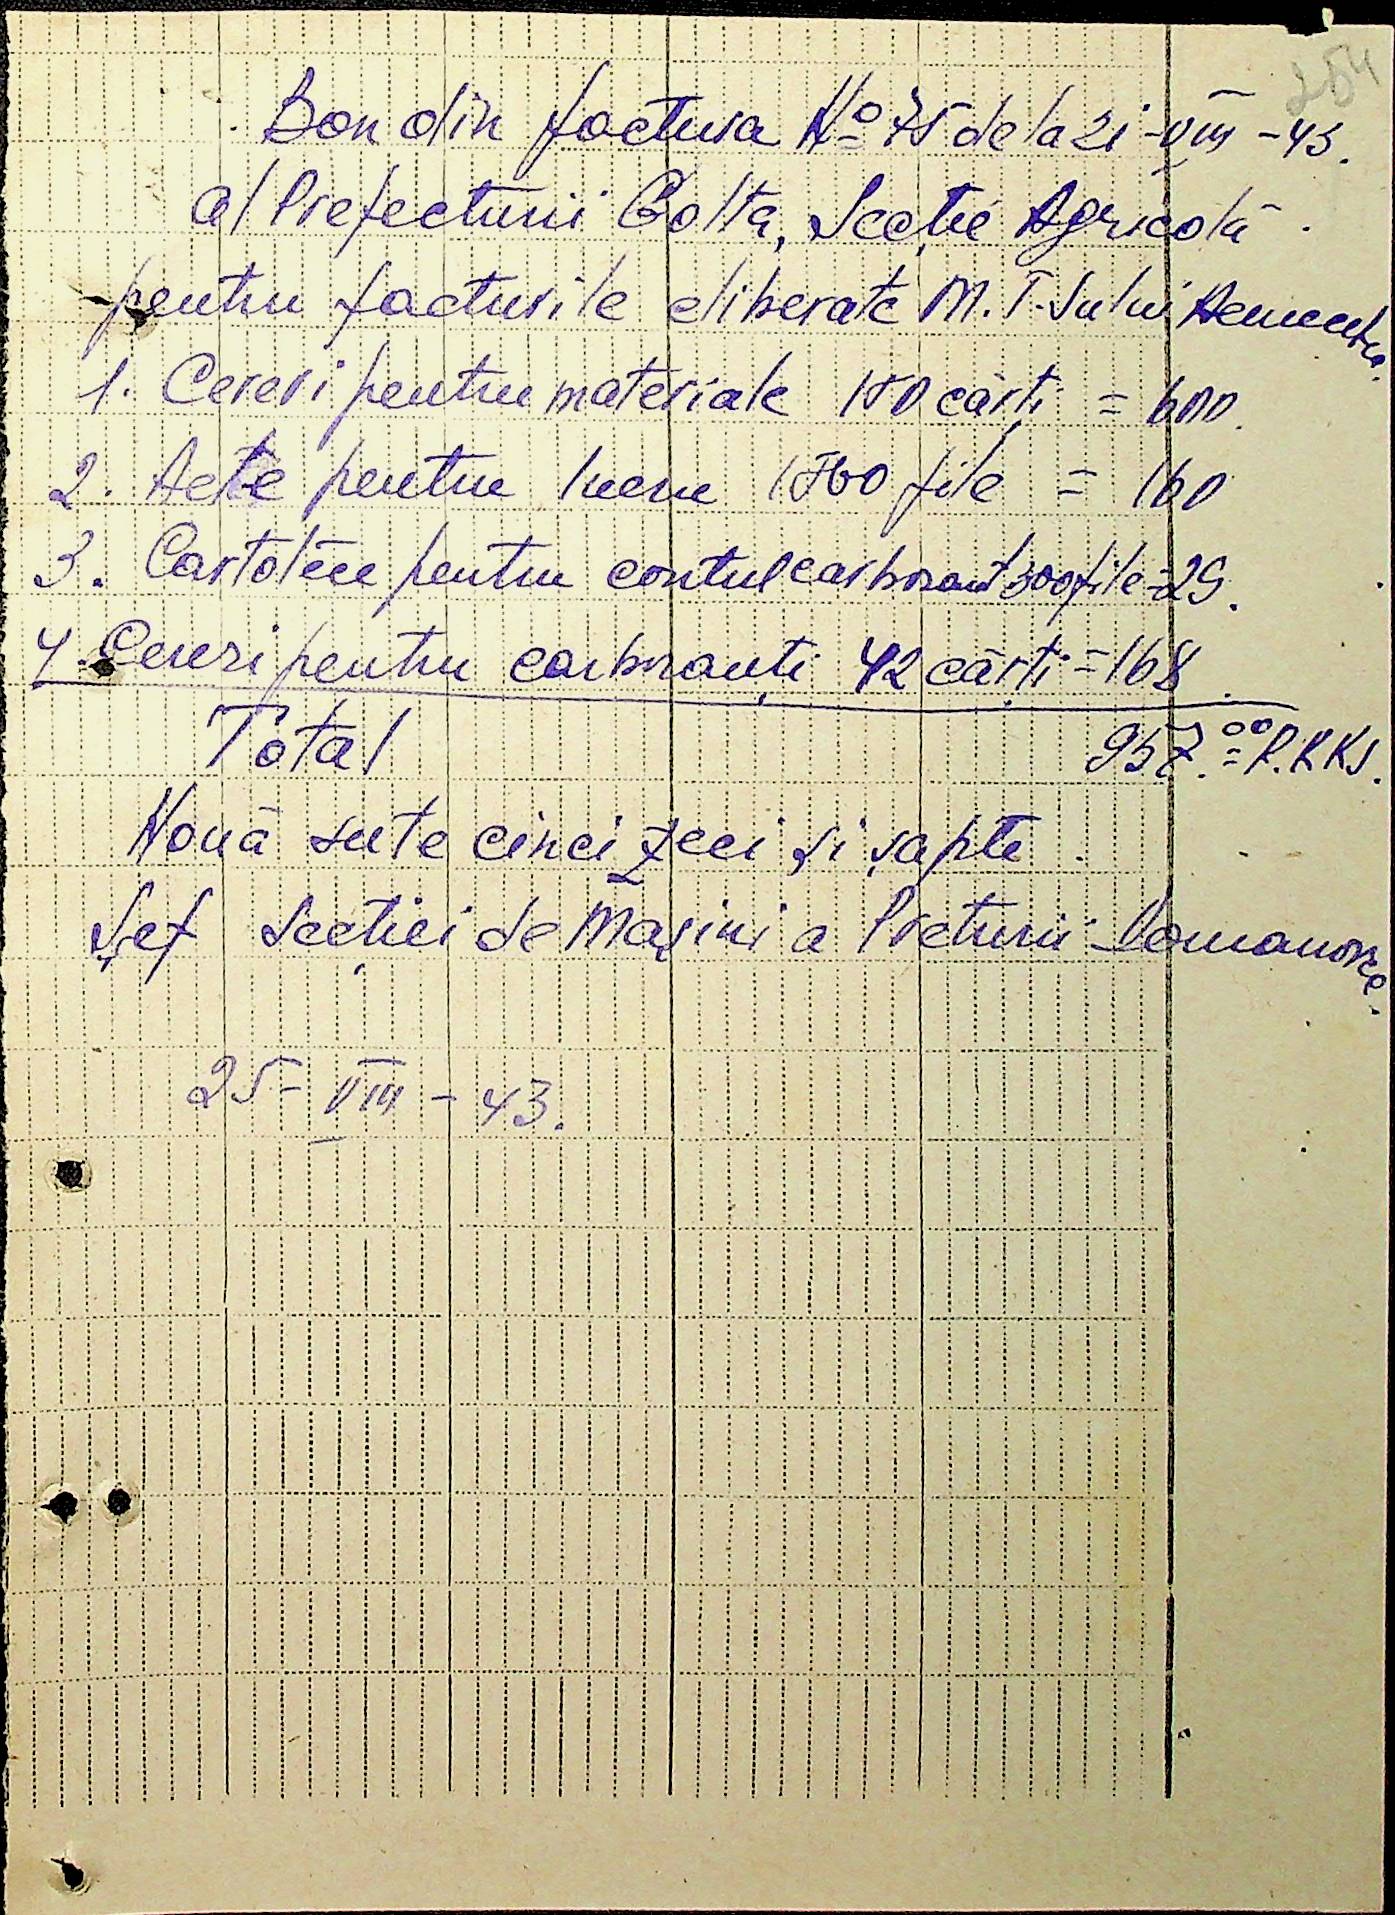 254
Bon din factura No 75 de la 21-VIII-43.
al Prefecturii Golta, Secție Agricolă.
pentru facturile eliberate M.T.S.ului
1. Cereri pentru materiale 150 cărți = 600.
2. Acte pentru lucru 1560 file = 160
3. Cartotece pentru contul carborant 300 file = 29.
4. Cereri pentru carboranți 42 cărți = 168
Total 957.00 R.KKS.
Nouă sute cinci zeci și șapte.
Șef Secției de Mașini a Preturii Domanovce.
25-VIII-43.